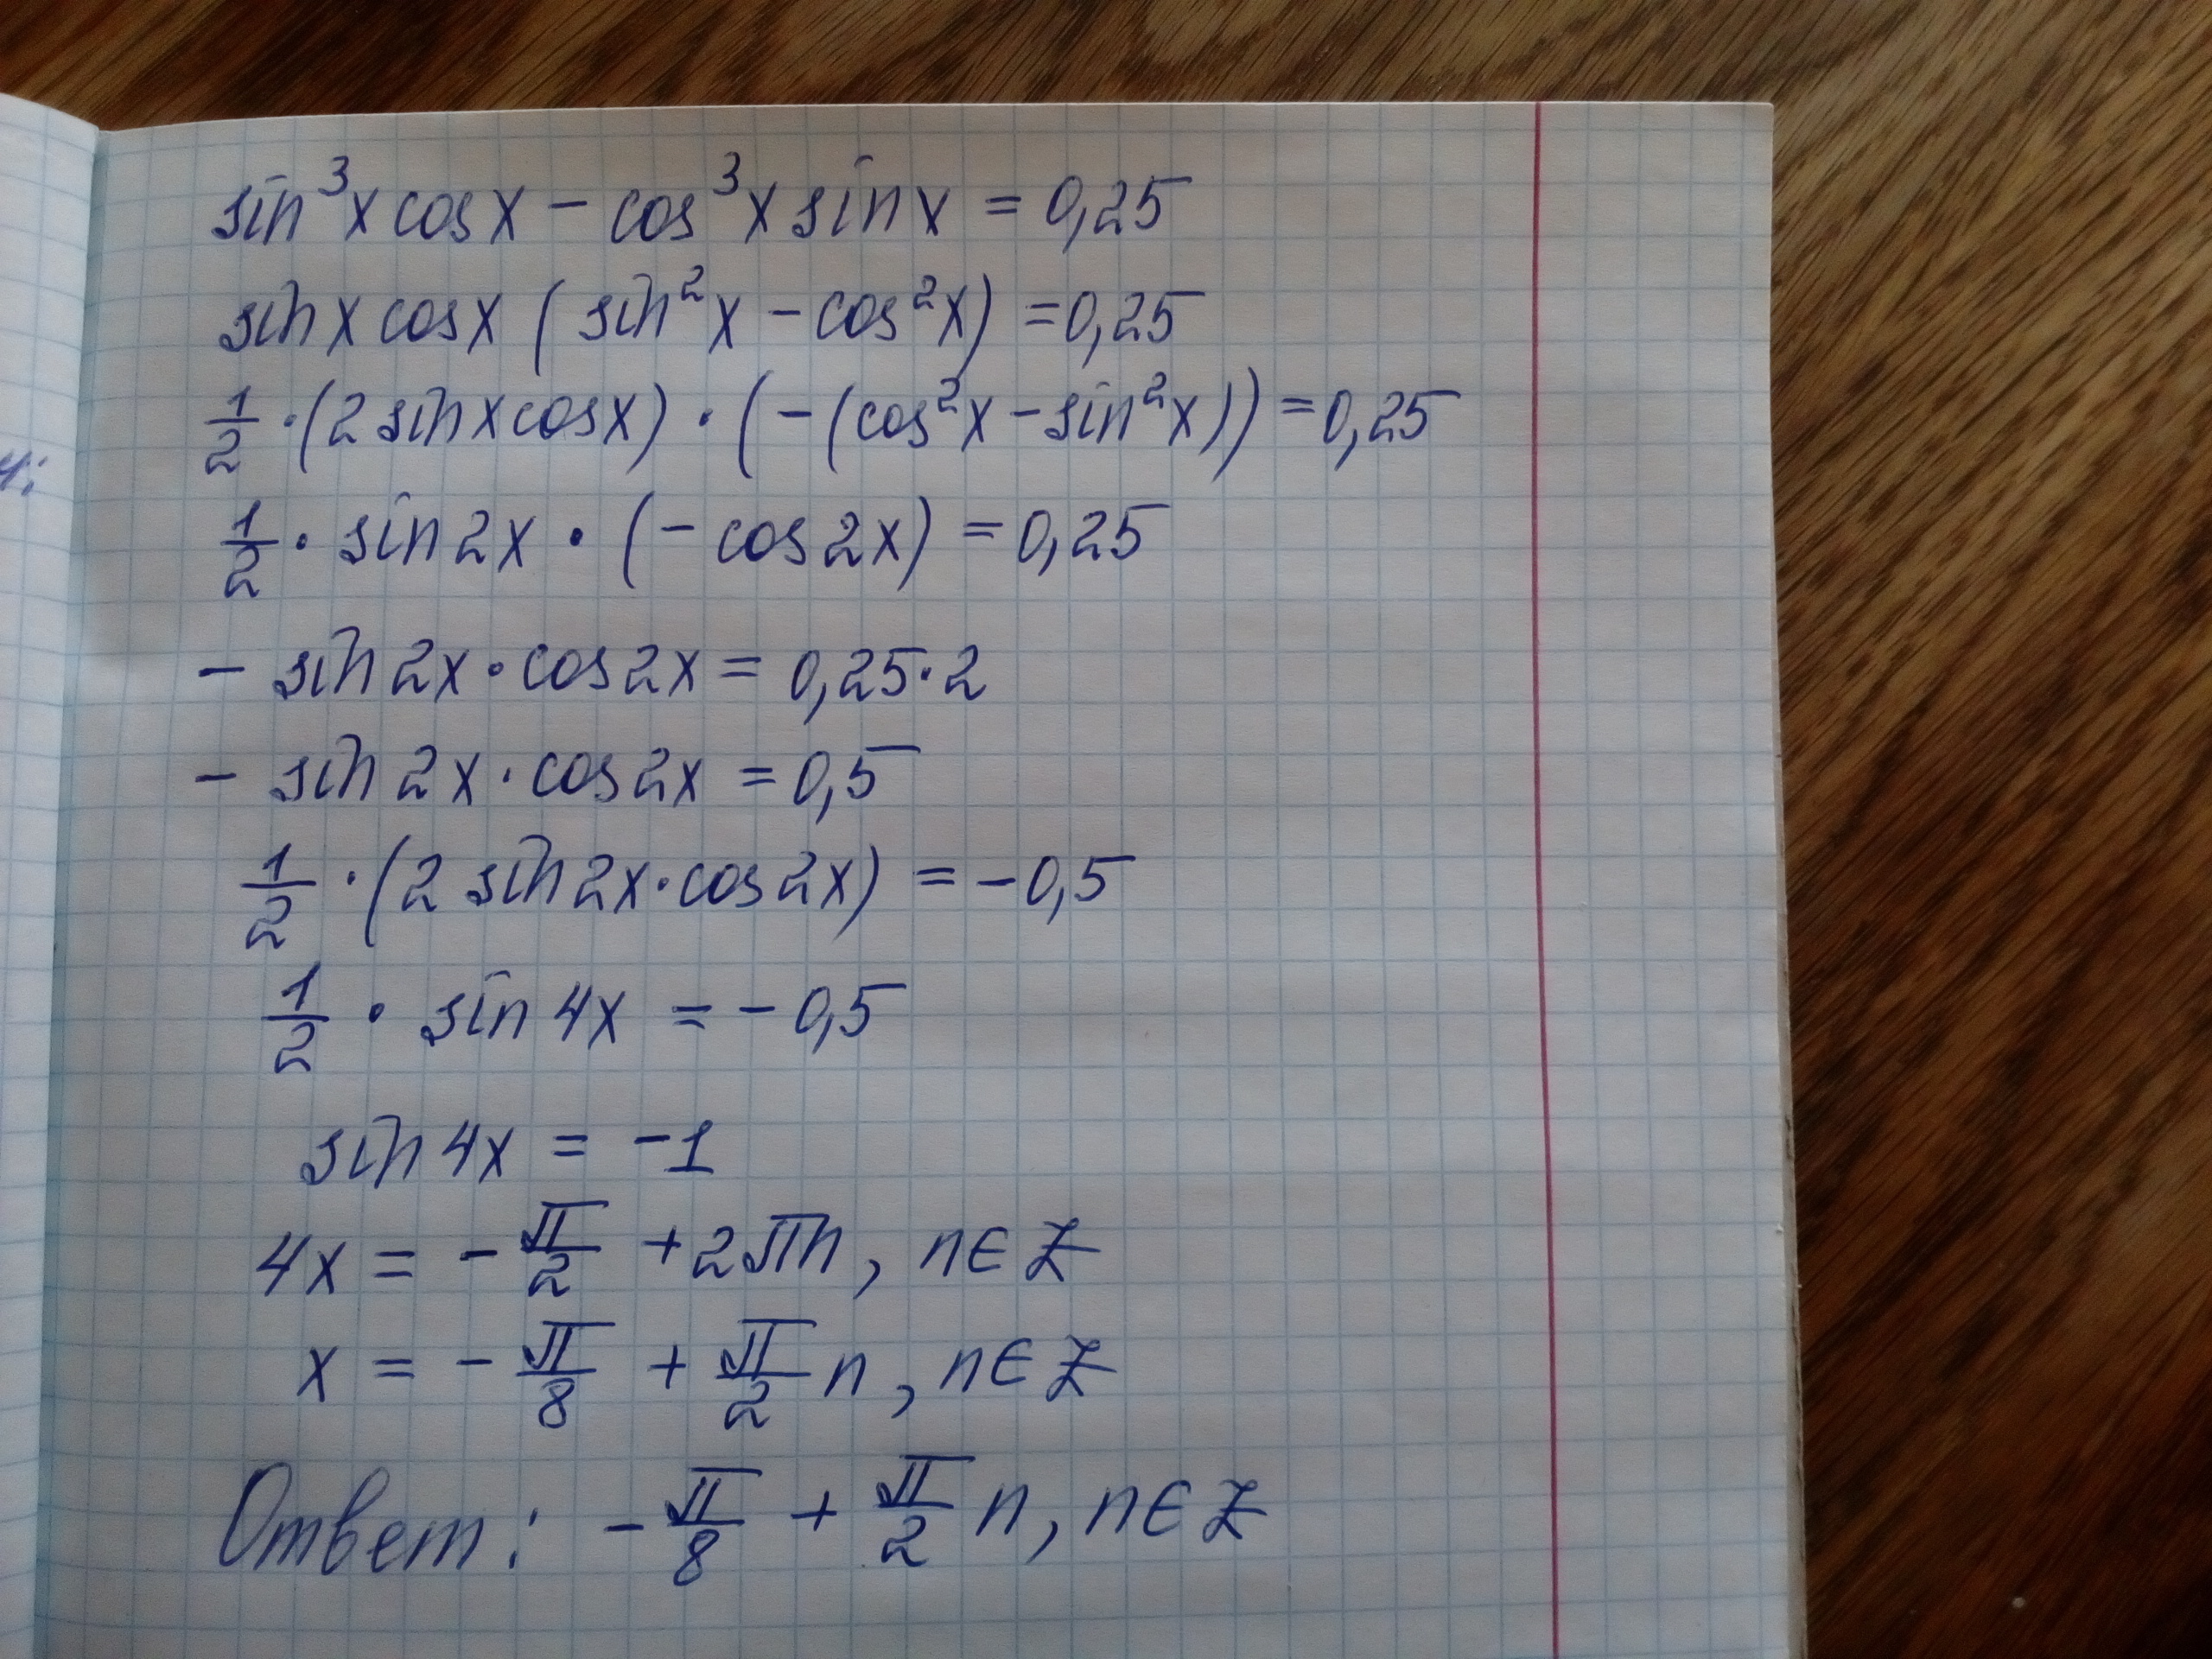 sin³x cosx − cos³x sinx = 0,25
sinx cosx (sin²x − cos²x) = 0,25
1/2 · (2 sinx cosx) · (−(cos²x − sin²x)) = 0,25
1/2 · sin 2x · (− cos 2x) = 0,25
− sin 2x · cos 2x = 0,25 · 2
− sin 2x · cos 2x = 0,5
1/2 · (2 sin 2x · cos 2x) = −0,5
1/2 · sin 4x = −0,5
sin 4x = −1
4x = −π/2 + 2πn, n∈Z
x = −π/8 + π/2 n, n∈Z
Ответ: −π/8 + π/2 n, n∈Z